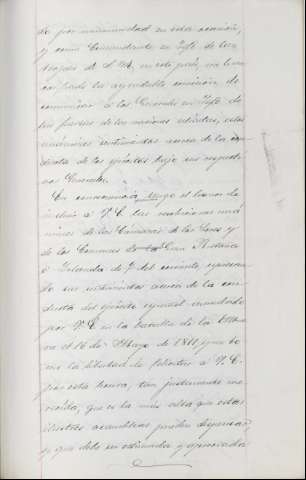 do por unanimidad en esta ocasion,
y como Comandante en Jefe de las
tropas de S. M. en este pais, me
cabido la agradable comision de
comunicar a los Generales en Jefe de
las fuerzas de las naciones aliadas, estas
unánimes sentimientos acerca de la con
ducta de los ejércitos bajo sus respecti
vos Generales.
En consecuencia tengo el honor de
incluir a V. E. las mociones uná
nimes de las Cámaras de los Pares y
de los Comunes de la Gran Bretaña
é Irlanda de 7 del corriente, expresan
do sus sentimientos acerca de la con
ducta del ejército español mandado
por V. E. en la batalla de la Albue
ra el 16 de Mayo de 1811, y me to
mo la libertad de felicitar á V. E.
por esta honra, tan justamente me
recida, que es la mas alta que estas
ilustres asambleas pueden dispensar,
y que debe ser estimada y apreciada